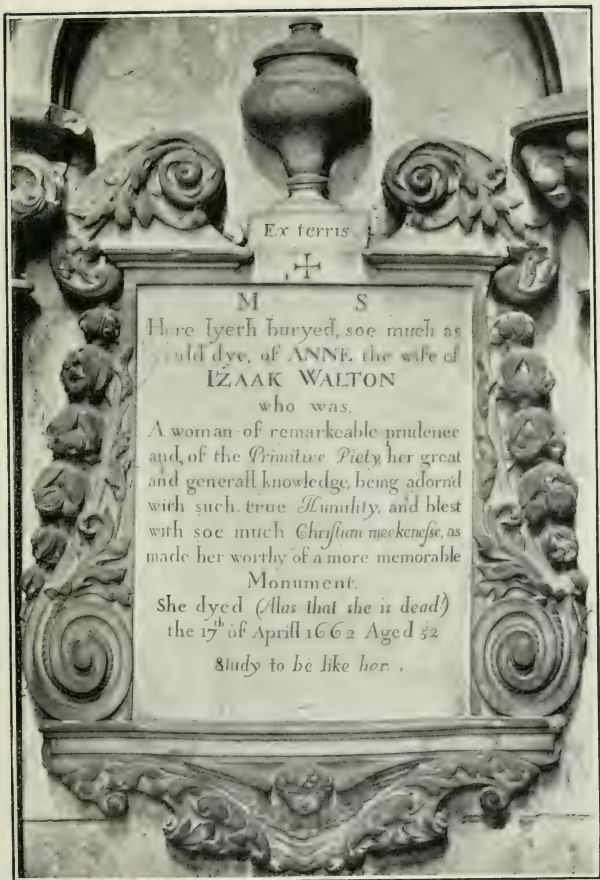 Ex terris
M S
Here lyeth buryed, soe much as
could dye, of ANNE, the wife of
IZAAK WALTON
who was,
A woman of remarkeable prudence
and, of the Primitive Piety, her great
and generall knowledge, being adorn'd
with such true Humility, and blest
with soe much Christian meekenesse, as
made her worthy of a more memorable
Monument.
She dyed (Alas that she is dead!)
the 17th of Aprill 1662 Aged 52
Study to be like her.